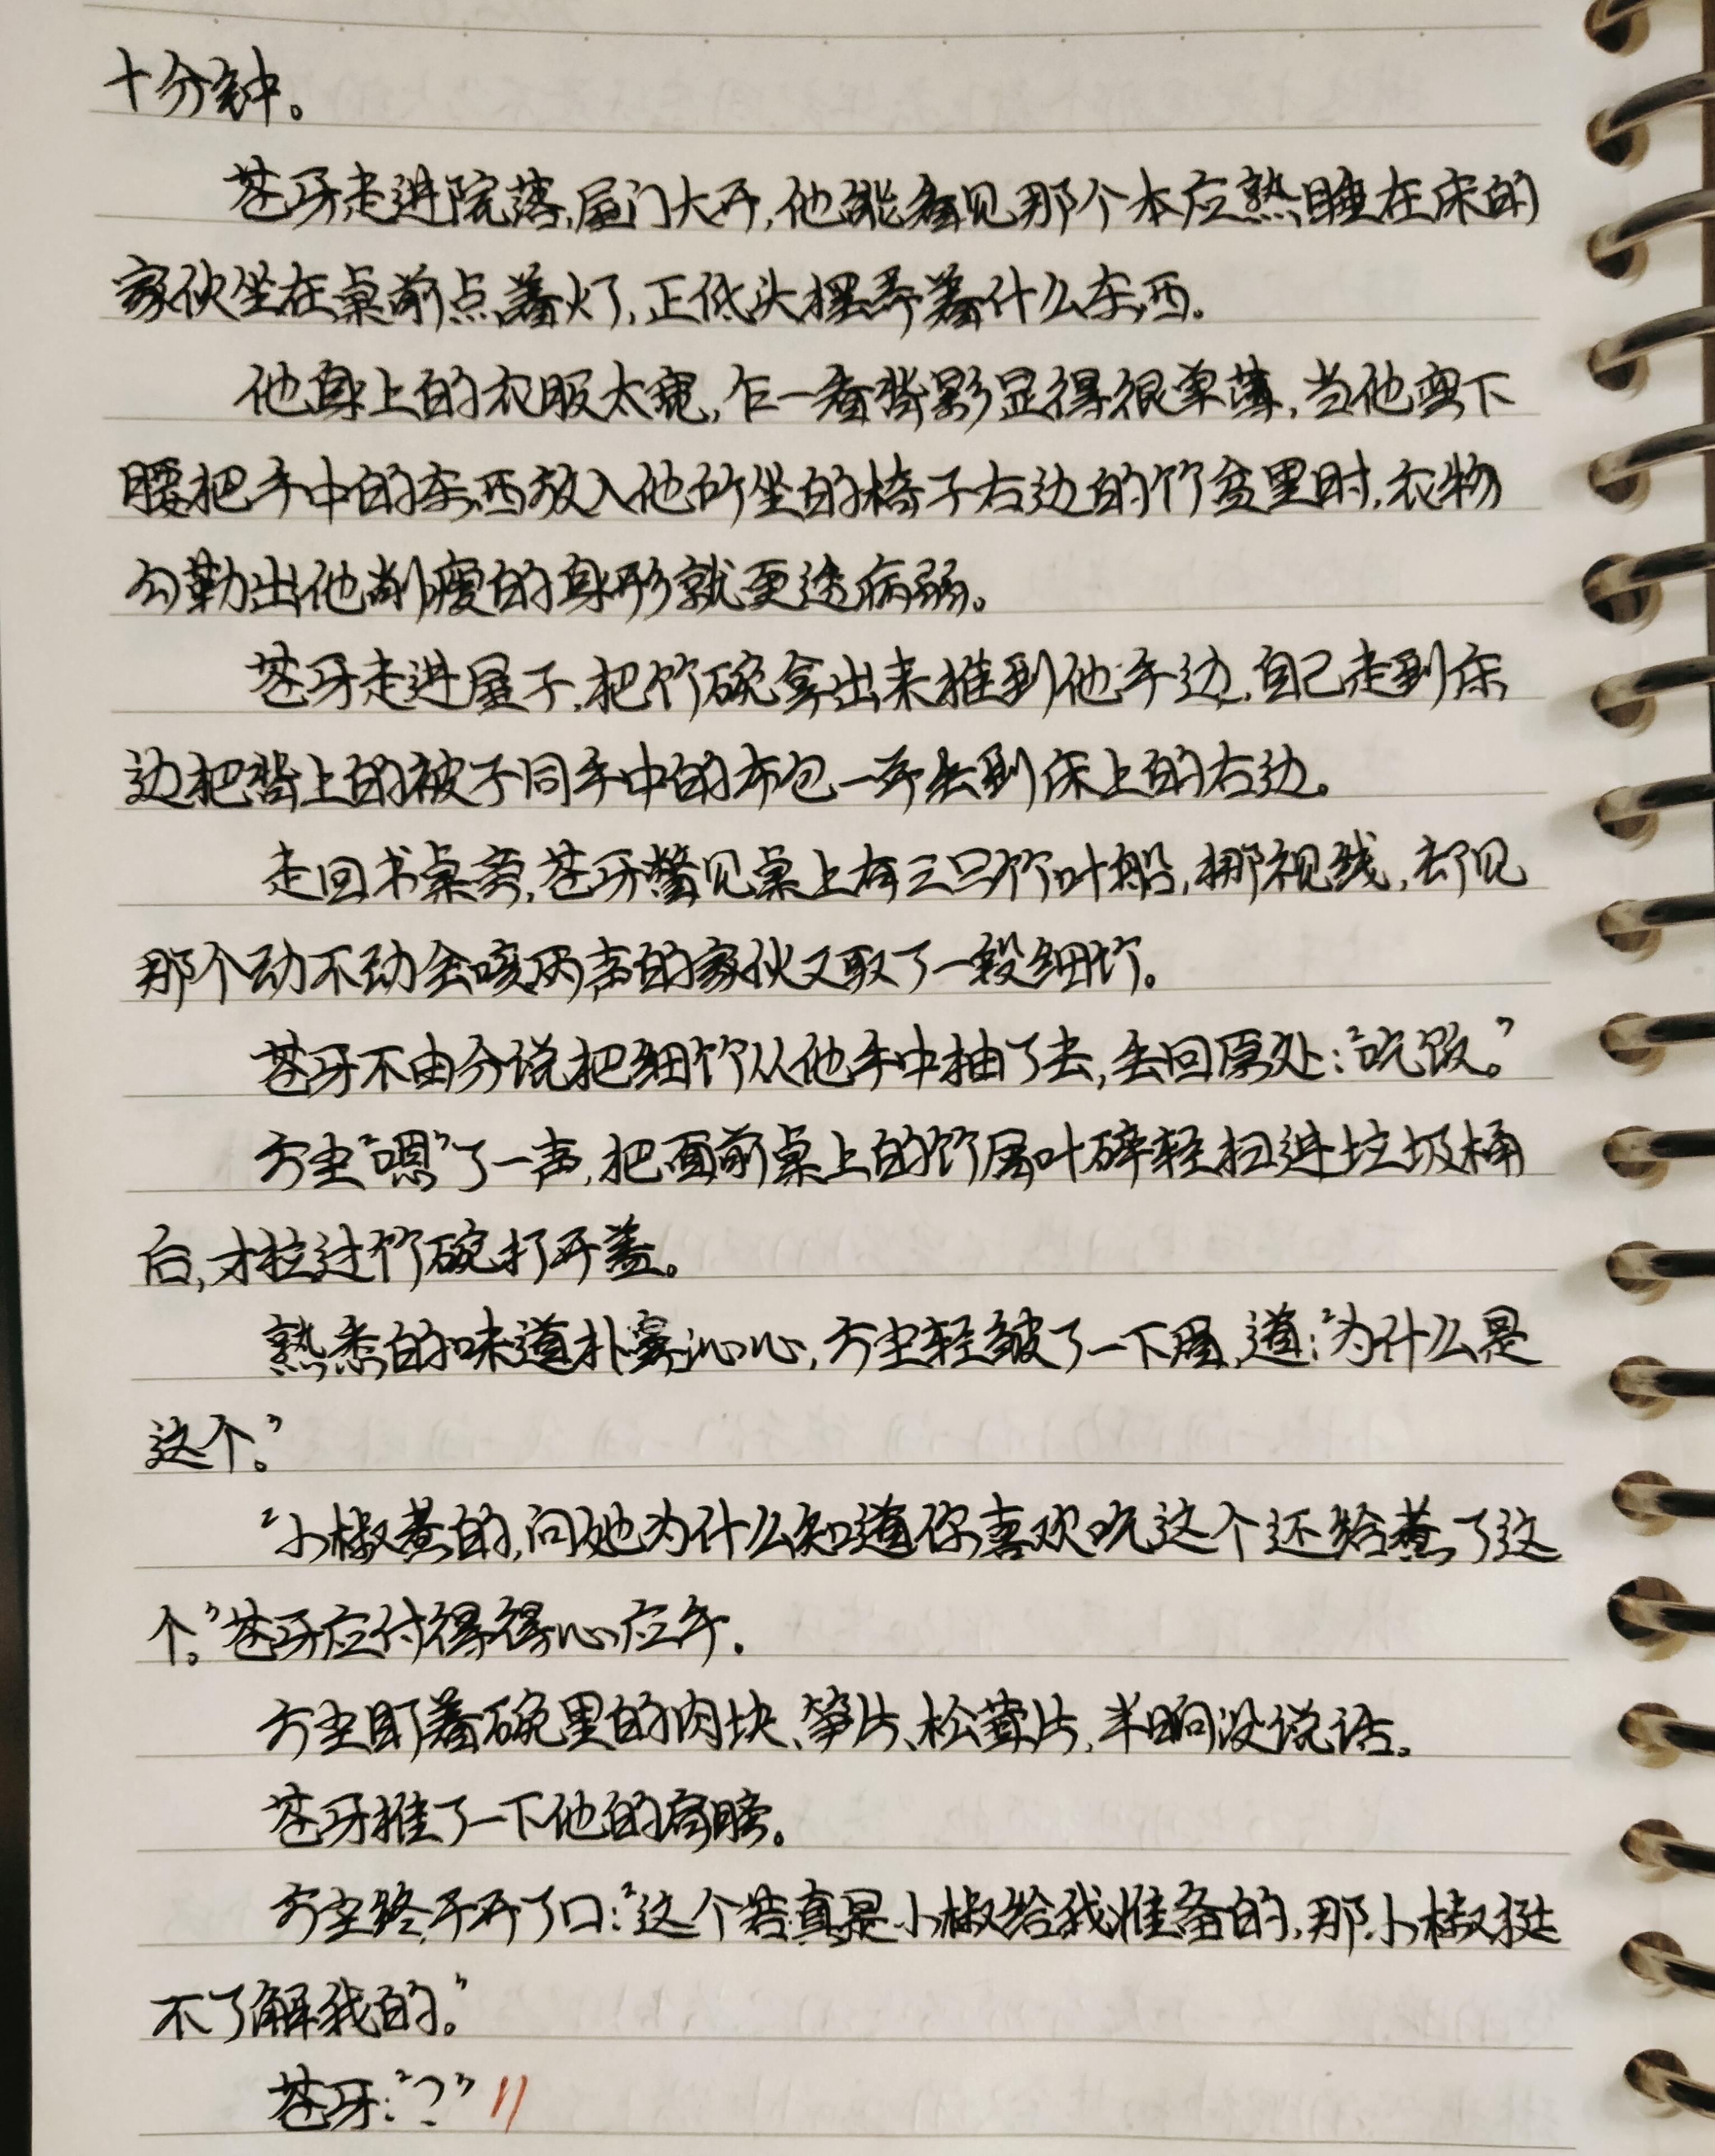 十分钟。
苍牙走进院落,屋门大开,他能看见那个本应熟睡在床的
家伙坐在桌前点着灯,正低头摆弄着什么东西。
他身上的衣服太宽,乍一看背影显得很单薄,当他弯下
腰把手中的东西放入他所坐的椅子右边的竹盆里时,衣物
勾勒出他削瘦的身形就更透病弱。
苍牙走进屋子,把竹碗拿出来推到他手边,自己走到床
边把背上的被子同手中的布包一齐丢到床上的右边。
走回书桌旁,苍牙瞥见桌上有三只竹叶船,挪视线,却见
那个动不动会咳两声的家伙又取了一段细竹。
苍牙不由分说把细竹从他手中抽了去,丢回原处:“吃饭。”
方尘“嗯”了一声,把面前桌上的竹屑叶碎轻扫进垃圾桶
后,才拉过竹碗打开盖。
熟悉的味道扑鼻沁心,方尘轻皱了一下眉,道:“为什么是
这个。”
“小椒煮的,问她为什么知道你喜欢吃这个还给煮了这
个。”苍牙应付得得心应手.
方尘盯着碗里的肉块、笋片、松茸片,半晌没说话。
苍牙推了一下他的肩膀。
方尘终于开了口:“这个若真是小椒给我准备的,那小椒挺
不了解我的。”
苍牙:“?”